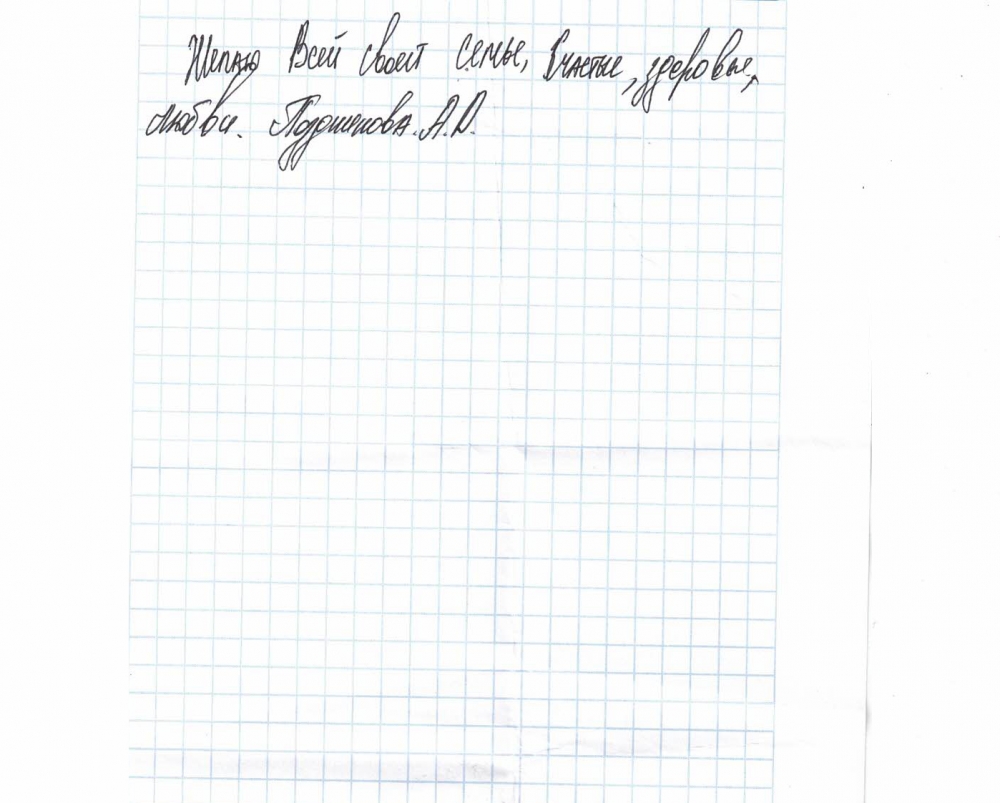 Желаю Всей своей семье, Счастье, здоровье,
любви. А.Д.